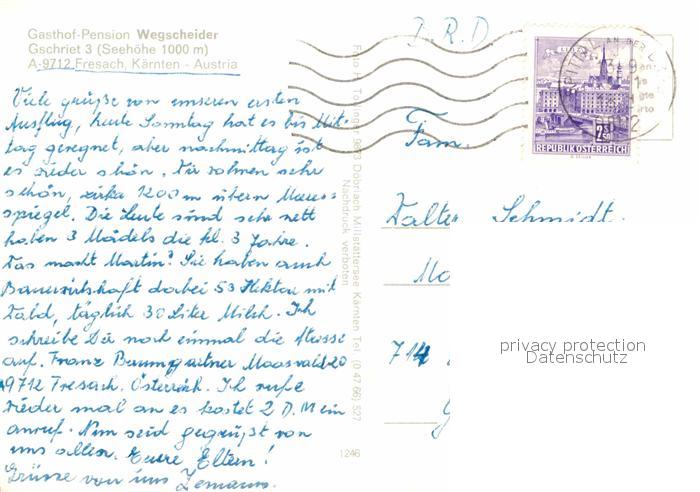 Gasthof-Pension Wegscheider
Gschriet 3 (Seehöhe 1000 m)
A-9712 Fresach, Kärnten - Austria
Viele grüße von unseren ersten
Ausflug, heute Sonntag hat es bis Mit-
tag geregnet, aber nachmittag ist
es wieder schön. Wir wohnen sehr
schön, zirka 1200 m übern Meeres-
spiegel. Die Leute sind sehr nett
haben 3 Mädels die kl. 3 Jahre.
Was macht Martin? Sie haben auch
Bauernwirtschaft dabei 53 Hektar mit
Wald, täglich 30 Liter Milch. Ich
schreibe Dir noch einmal die Adresse
auf. Franz Baumgartner Mooswald 20
A9712 Fresach. Österreich. Ich rufe
wieder mal an es kostet 2 D.M ein
anruf. Nun seid gegrüßt von
uns allen. Eure Eltern!
Grüsse von uns
1246
Döbriach Millstättersee Kärnten Tel. (0 47 66) 527
Nachdruck verboten
REPUBLIK ÖSTERREICH
Fam.
Walter Schmidt.
Mo
714
privacy protection
Datenschutz